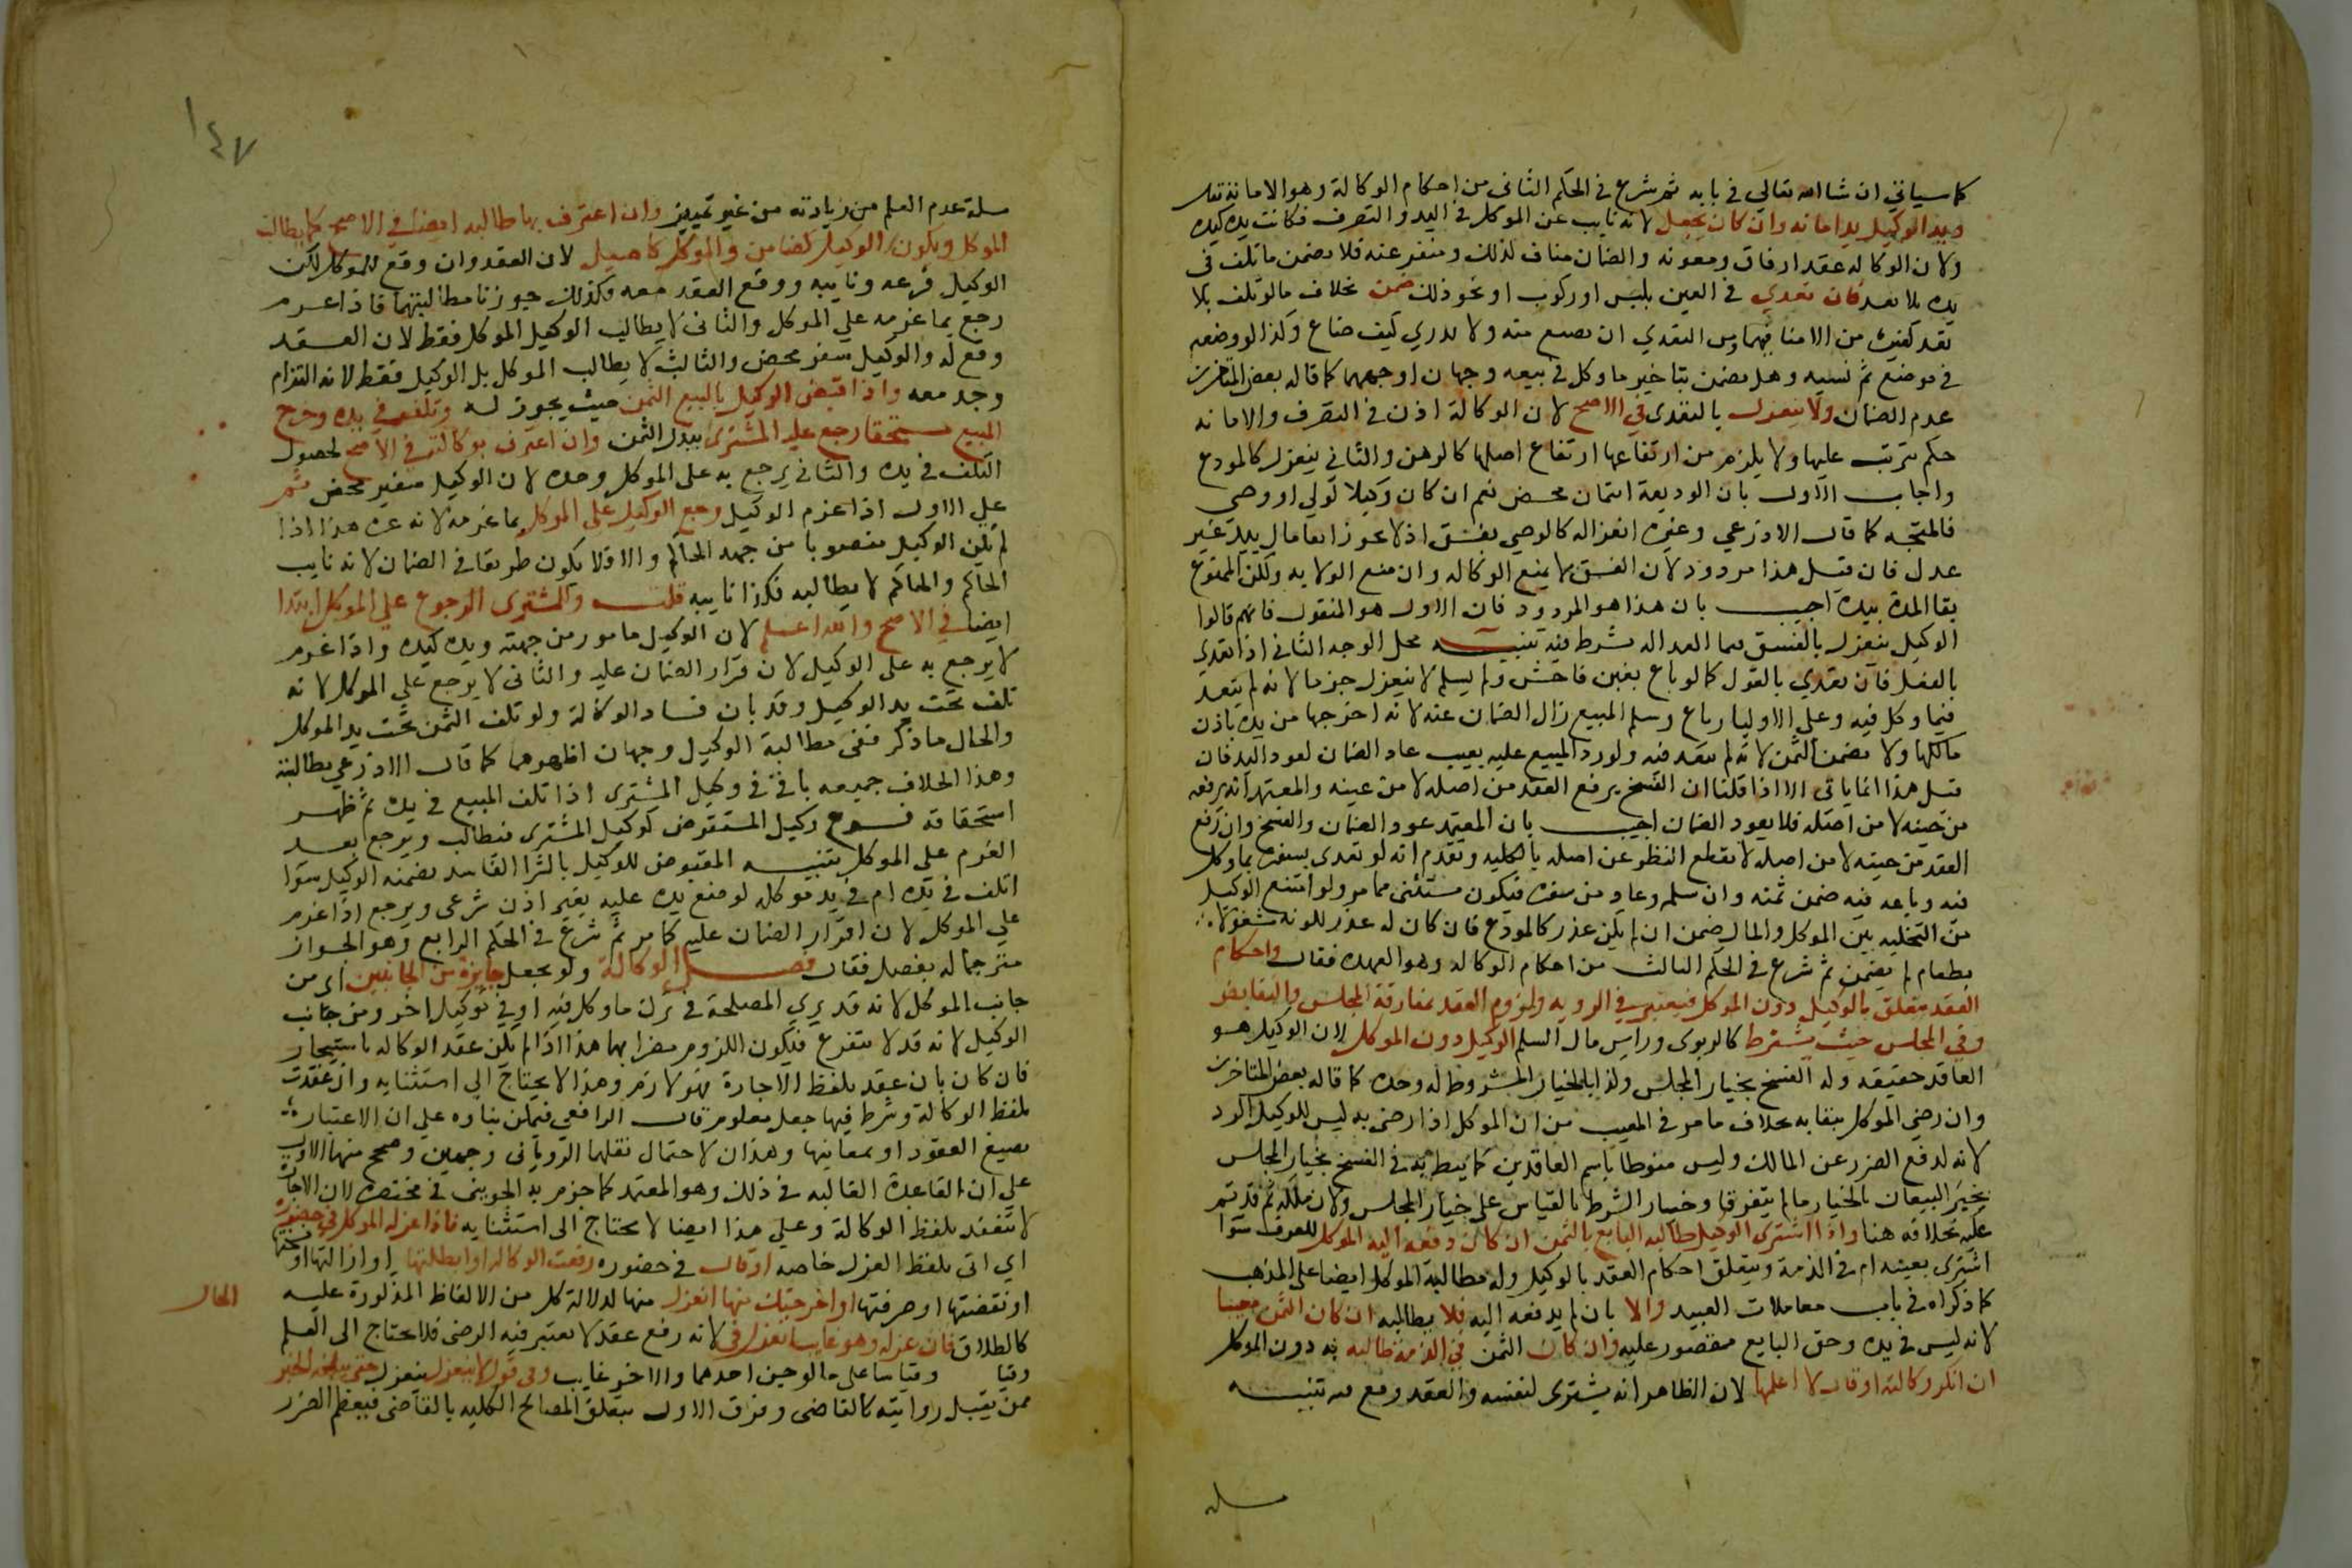 كما سياتي ان شا الله تعالي في بابه ثم شرع في الحكم الثاني من احكام الوكالة وهو الامانة فقال
ويد الوكيل يد امانه وان كان بجعل لانه نايب عن الموكل في اليد والتصرف فكانت يده كيده
ولان الوكاله عقد ارفاق ومعونه والضمان مناف لذلك ومنفر عنه فلا يضمن ما تلف في
يده بلا تعد فان تعدي في العين بلبس او ركوب او نحو ذلك ضمن بخلاف ما لو تلف بلا
تعد كغيره من الامنا فيهما ومن التعدي ان يضيع منه ولا يدري كيف ضاع وكذا لو وضعه
في موضع ثم نسيه وهل يضمن بتاخير ما وكل في بيعه وجهان اوجههما كما قاله بعض المتاخرين
عدم الضمان ولا ينعزل بالتعدي في الاصح لان الوكالة اذن في التصرف والامانه
حكم يترتب عليها ولا يلزم من ارتفاعها ارتفاع اصلها كالرهن والثاني ينعزل كالمودع
واجاب الاول بان الوديعة ايتمان محض نعم ان كان وكيلا لولي او وصي
فالمتجه كما قال الاذرعي وغيره انعزاله كالوصي يفسق اذ لا يجوز ابقا مال بيد غير
عدل فان قيل هذا مردود لان الفسق لا يمنع الوكاله وان منع الولايه ولكن الممنوع
بقا المدة بيده اجيب بان هذا هو المردود فان الاول هو المنقول فانهم قالوا
الوكيل ينعزل بالفسق فيما العداله شرط فيه تنبيه محل الوجه الثاني اذا تعدي
بالفعل فان تعدي بالقول كما لو باع بغبن فاحش ولم يسلم لا ينعزل جزما لانه لم يتعد
فيما وكل فيه وعلي الاول لو باع وسلم المبيع زال الضمان عنه لانه اخرجها من يده باذن
مالكها ولا يضمن الثمن لانه لم يتعد فيه ولو رد المبيع عليه بعيب عاد الضمان لعود اليد فان
قيل هذا انما ياتي الا اذا قلنا ان الفسخ يرفع العقد من اصله لا من عينه والمعتمد انه يرفعه
من حينه لا من اصله فلا يعود الضمان اجيب بان المعتمد عود الضمان والفسخ وان رفع
العقد من حينه لا من اصله لا يقطع النظر عن اصله بالكليه وتقدم انه لو تعدي بسفره بما وكل
فيه وباعه فيه ضمن ثمنه وان سلمه وعاد من سفره فيكون مستثني مما مر ولو امتنع الوكيل
من التخليه بين الموكل والمال ضمن ان لم يكن عذر كالمودع فان كان له عذر لكونه مشغولا
بطعام لم يضمن ثم شرع في الحكم الثالث من احكام الوكاله وهو العهده فقال واحكام
العقد متعلق بالوكيل دون الموكل فيعتبر في الرويه ولزوم العقد بمفارقة المجلس والتقابض
وفي المجلس حيث يشترط كالربوي وراس مال السلم الوكيل دون الموكل لان الوكيل هو
العاقد حقيقه وله الفسخ بخيار المجلس وكذا بالخيار المشروط له وحده كما قاله بعض المتاخرين
وان رضي الموكل ببقايه بخلاف ما مر في المعيب من ان الموكل اذا رضي به ليس للوكيل الرد
لانه لدفع الضرر عن المالك وليس منوطا باسم العاقدين كما ينط به في الفسخ بخيار المجلس
بخبر البيعان بالخيار ما لم يتفرقا وخيار الشرط بالقياس علي خيار المجلس ولان ملكه ثم قد تم
عليه بخلافه هنا واذا اشتري الوكيل طالبه البايع بالثمن ان كان دفعه اليه الموكل للعرف سوا
اشتري بعينه ام في الذمة ويتعلق احكام العقد بالوكيل وله مطالبة الموكل ايضا علي المذهب
كما ذكراه في باب معاملات العبيد والا بان لم يدفعه اليه فلا يطالبه ان كان الثمن معينا
لانه ليس في يده وحق البايع مقصور عليه وان كان الثمن في الذمة طالبه به دون الموكل
ان انكر وكالته او قال لا اعلمها لان الظاهر انه يشتري لنفسه والعقد وقع معه تنبيه
مسله
١٤٧
مسلة عدم العلم من زيادته من غير تمييز وان اعترف بها طالبه ايضا في الاصح كما يطالب
الموكل ويكون الوكيل كضامن والموكل كاصيل لان العقد وان وقع للموكل لكن
الوكيل فرعه ونايبه ووقع العقد معه فكذلك جوزنا مطالبتهما فاذا غرم
رجع بما غرمه علي الموكل والثاني لا يطالب الوكيل الموكل فقط لان العقد
وقع له والوكيل سفير محض والثالث لا يطالب الموكل بل الوكيل فقط لانه التزام
وجد معه واذا قبض الوكيل بالبيع الثمن حيث يجوز له وتلف في يده وخرج
المبيع مستحقا رجع عليه المشتري ببدل الثمن وان اعترف بوكالته في الاصح لحصول
التلف في يده والثاني يرجع به علي الموكل وحده لان الوكيل سفير محض ثم
علي الاول اذا غرم الوكيل رجع الوكيل علي الموكل بما غرمه لانه غره هذا اذا
لم يكن الوكيل منصوبا من جهة الحاكم والا فلا يكون طريقا في الضمان لانه نايب
الحاكم والحاكم لا يطالبه فكذا نايبه قلت وللمشتري الرجوع علي الموكل ابتدا
ايضا في الاصح والله اعلم لان الوكيل مامور من جهته ويده كيده واذا غرم
لا يرجع به علي الوكيل لان قرار الضمان عليه والثاني لا يرجع علي الموكل لانه
تلف تحت يد الوكيل وقد بان فساد الوكالة ولو تلف الثمن تحت يد الموكل
والحال ما ذكر ففي مطالبة الوكيل وجهان اظهرهما كما قال الاذرعي مطالبته
وهذا الخلاف جميعه باق في وكيل المشتري اذا تلف المبيع في يده ثم ظهر
استحقاقه فروع وكيل المستقرض كوكيل المشتري فيطالب ويرجع بعد
الغرم علي الموكل تنبيه المقبوض للوكيل بالشرا الفاسد يضمنه الوكيل سوا
اتلف في يده ام في يد موكله لوضع يده عليه بغير اذن شرعي ويرجع اذا غرم
علي الموكل لان اقرار الضمان عليه كما مر ثم شرع في الحكم الرابع وهو الجواز
مترجما له بفصل فقال فصل الوكالة ولو بجعل جايزة من الجانبين اي من
جانب الموكل لانه قد يري المصلحة في ترك ما وكل فيه او في توكيل اخر ومن جانب
الوكيل لانه قد لا يتفرغ فيكون اللزوم مضرا بهما هذا اذا لم يكن عقد الوكاله باستيجار
فان كان بان عقد بلفظ الاجارة فهو لازم وهذا لا يحتاج الي استثنايه وان عقدت
بلفظ الوكالة وشرط فيها جعل معلوم قال الرافعي فيمكن بناوه علي ان الاعتبار
بصيغ العقود او بمعانيها وهذان لاحتمال نقلهما الروياني وجهين وصحح منهما الاول
علي ان القاعدة الغالبه في ذلك وهو المعتمد كما جزم به الجويني في مختصره لان الاجارة
لا تنعقد بلفظ الوكالة وعلي هذا ايضا لا يحتاج الي استثنايه فاذا عزله الموكل في حضوره
اي اتي بلفظ العزل خاصه او قال في حضوره رفعت الوكاله او ابطلتها او ازالتها او فسختها
او نقضتها او صرفتها او اخرجتك منها انعزل منها لدلالة كل من الالفاظ المذكورة عليه
الحال
كالطلاق فان عزله وهو غايب انعزل في لانه رفع عقد لا يعتبر فيه الرضي فلا يحتاج الي العلم
وقيا وقياسا علي ما لو جن احدهما والاخر غايب وفي قول لا ينعزل ينعزل حتي يبلغه الخبر
ممن يقبل روايته كالقاضي وفرق الاول بتعلق المصالح الكليه بالقاضي فيعظم الضرر